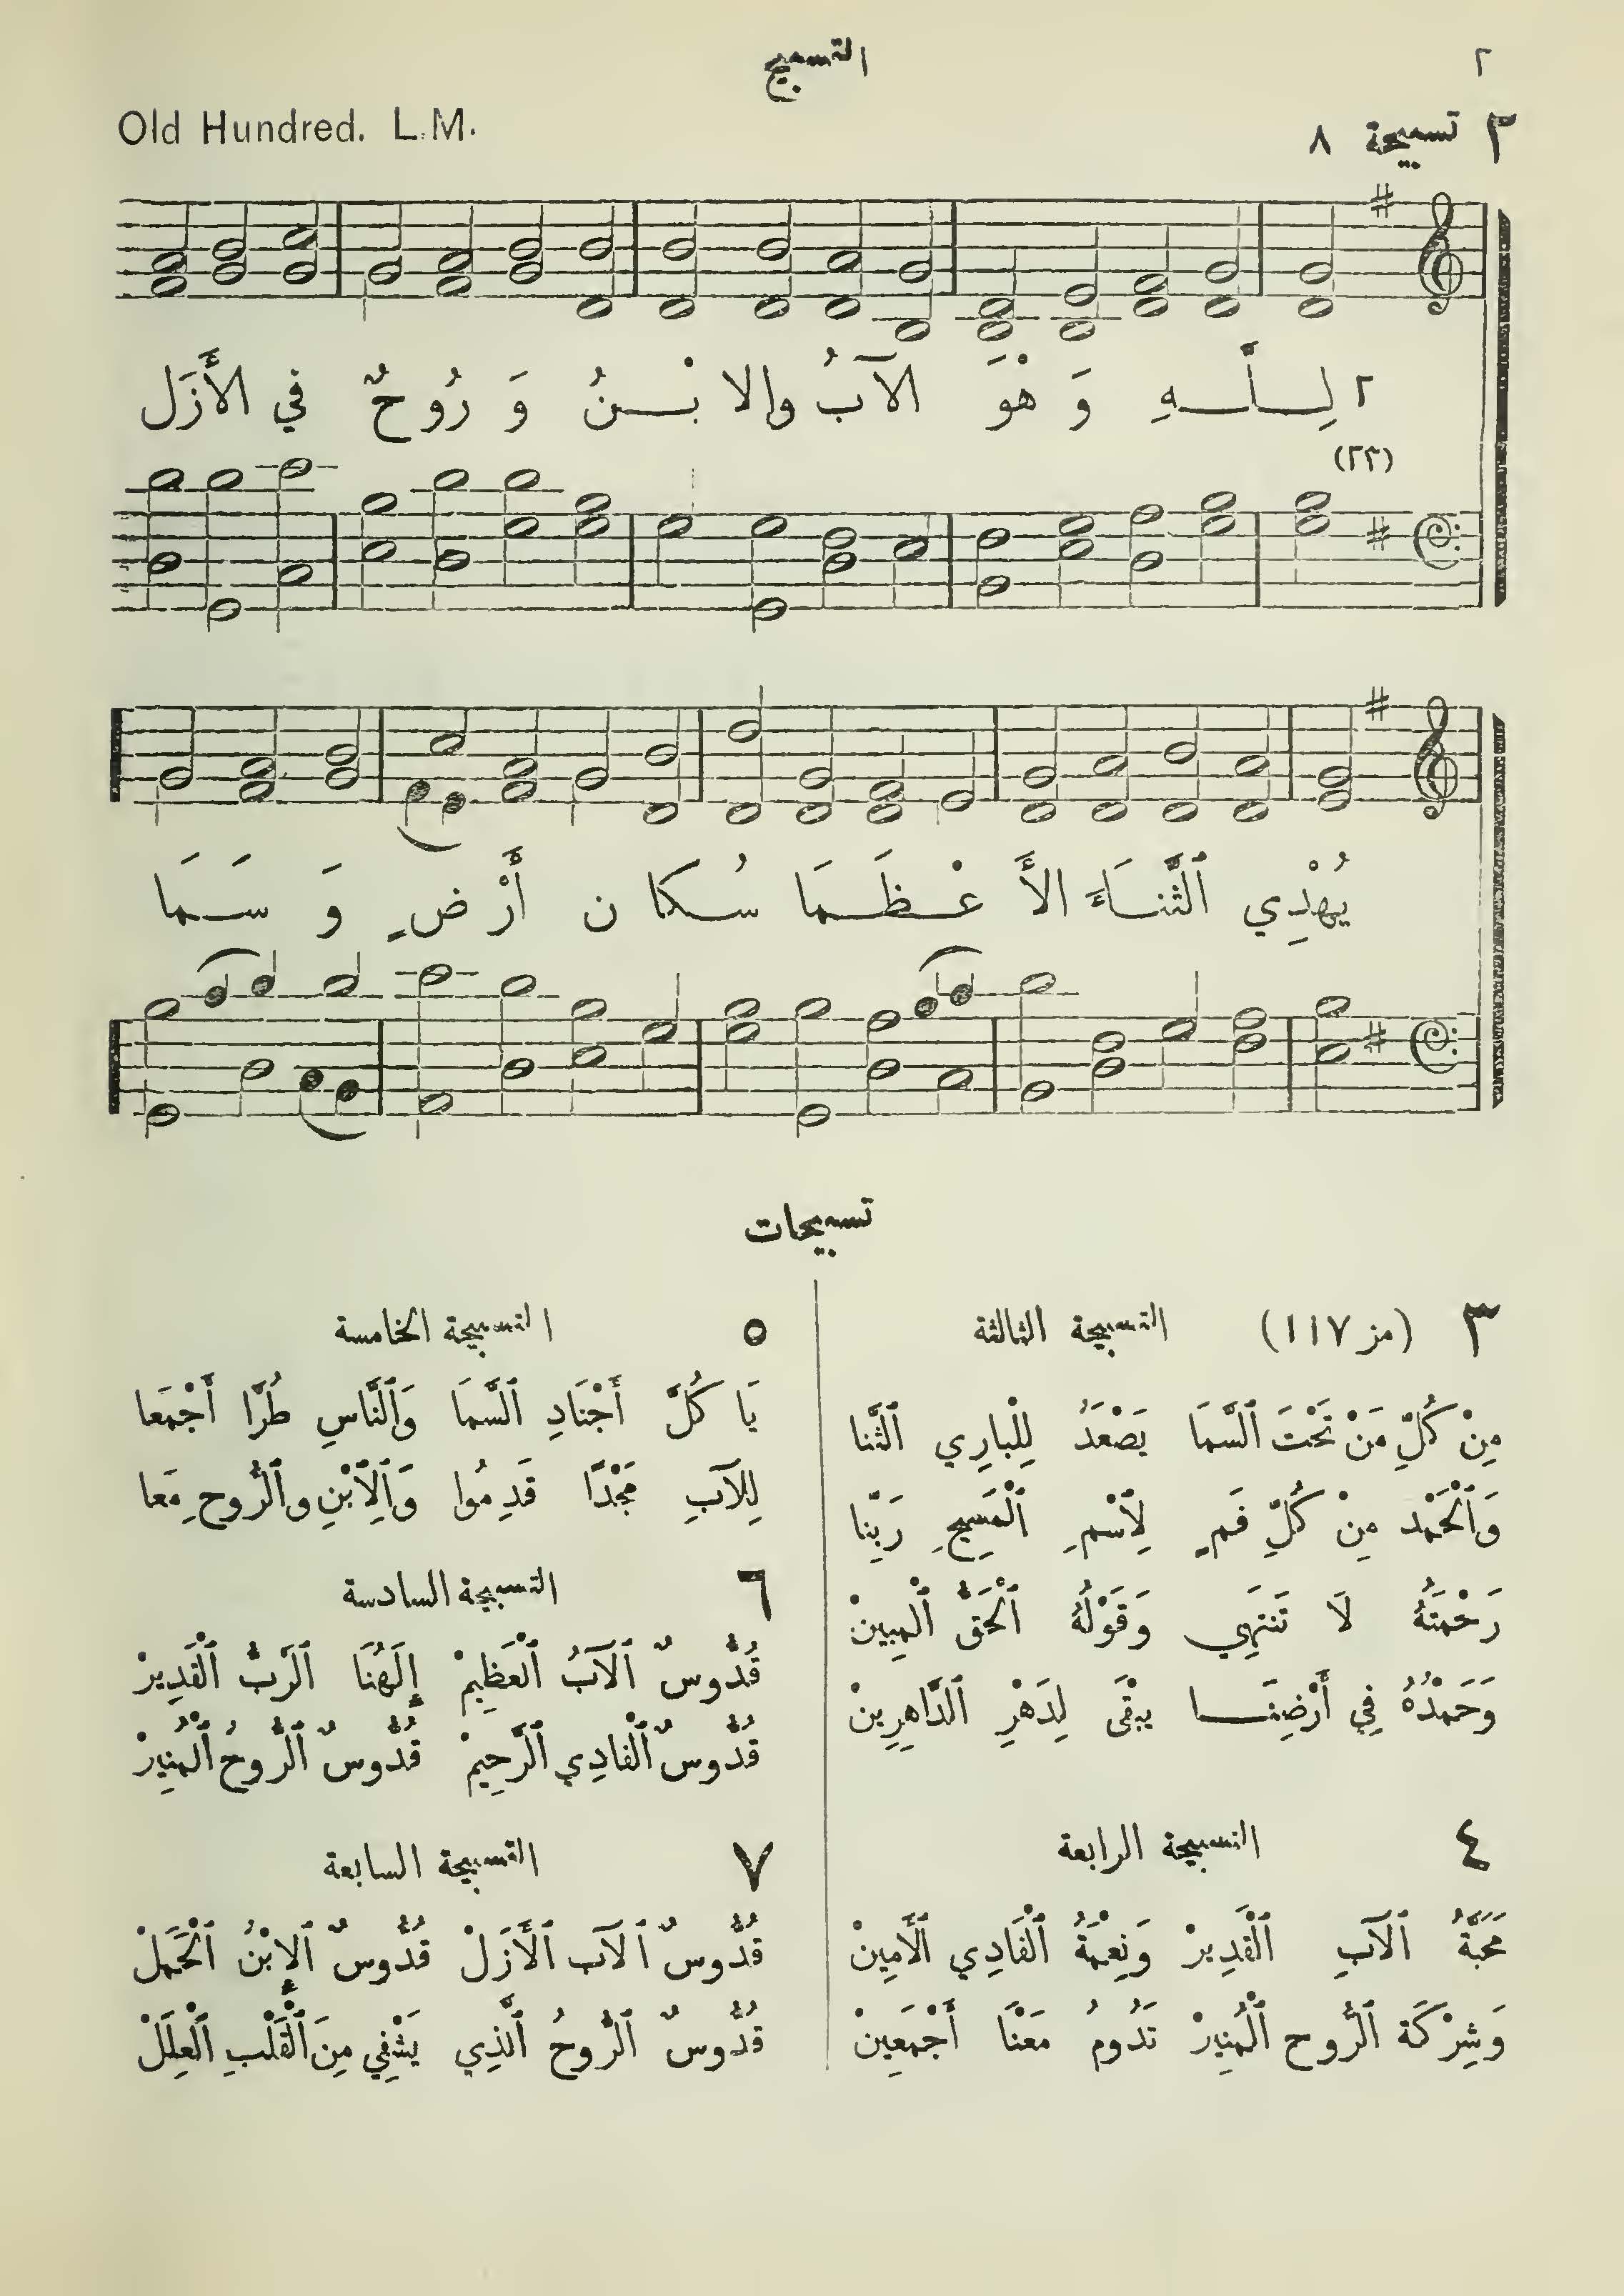 ٢
التسبيح
٣ تسبيحة ٨
Old Hundred. L.M.
٢ لِـلّٰـهِ وَ هْوَ الآبُ والا بْـنُ وَ رُوحٌ في الأَزَل
(٢٣)
يُهْدِي ٱلثَّنَاءَ الأَ عْـظَـمَا سُـكا ن أَرْ ضٍ وَ سَـمَا
تسبيحات
٣ (مز ١١٧) التسبيحة الثالثة
مِنْ كُلِّ مَنْ تَحْتَ ٱلسَّمَا يَصْعَدُ لِلْبارِي ٱلثَّنا
وَٱلْحَمْد مِنْ كُلِّ فَمٍ لِٱسْمِ ٱلْمَسِيحِ رَبِّنا
رَحْمَتُهُ لَا تَنتَهِي وَقَوْلُهُ ٱلْحَقُّ ٱلْمبِينْ
وَحَمْدُهُ فِي أَرْضِنَـا يبْقَى لِدَهْرِ ٱلدَّاهِرِينْ
٤ التسبيحة الرابعة
مَحَبَّةُ ٱلْآبِ ٱلْقَدِيرْ وَنِعْمَةُ ٱلْفَادِي ٱلأَمِينْ
وَشِرْكَة ٱلرُّوح ٱلْمُنِيرْ تَدُومُ مَعْنَا أَجْمَعِينْ
٥ التسبيحة الخامسة
يَا كُلَّ أَجْنَادِ ٱلسَّمَا وَٱلنَّاسِ طُرًّا أَجْمَعا
لِلآبِ مَجْدًا قَدِمُوا وَٱلِٱبْنِ وٱلرُّوحِ مَعا
٦ التسبيحة السادسة
قُدُّوسٌ ٱلْآبُ ٱلْعَظِيمْ إِلَهُنَا ٱلرَبُّ ٱلْقَدِيرْ
قُدُّوسٌ ٱلْفادِي ٱلرَّحِيمْ قُدُّوسٌ ٱلرُّوحُ ٱلْمُنِيرْ
٧ التسبيحة السابعة
قُدُّوسٌ ٱلآب ٱلأَزَلْ قُدُّوسٌ ٱلإِبْنُ ٱلْحَمَلْ
قُدُّوسٌ ٱلرُّوحُ ٱلَّذِي يَشْفِي مِنَ ٱلْقَلْبِ ٱلْعِلَلْ